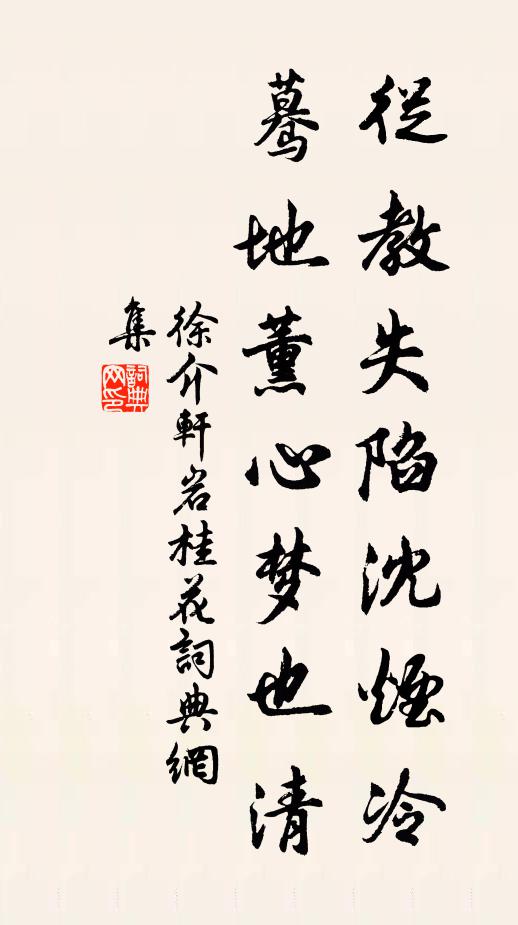 從教失陷沈煙冷
蓦地薰心梦也清
徐介軒岩桂花詞典網
集
詞典
网印